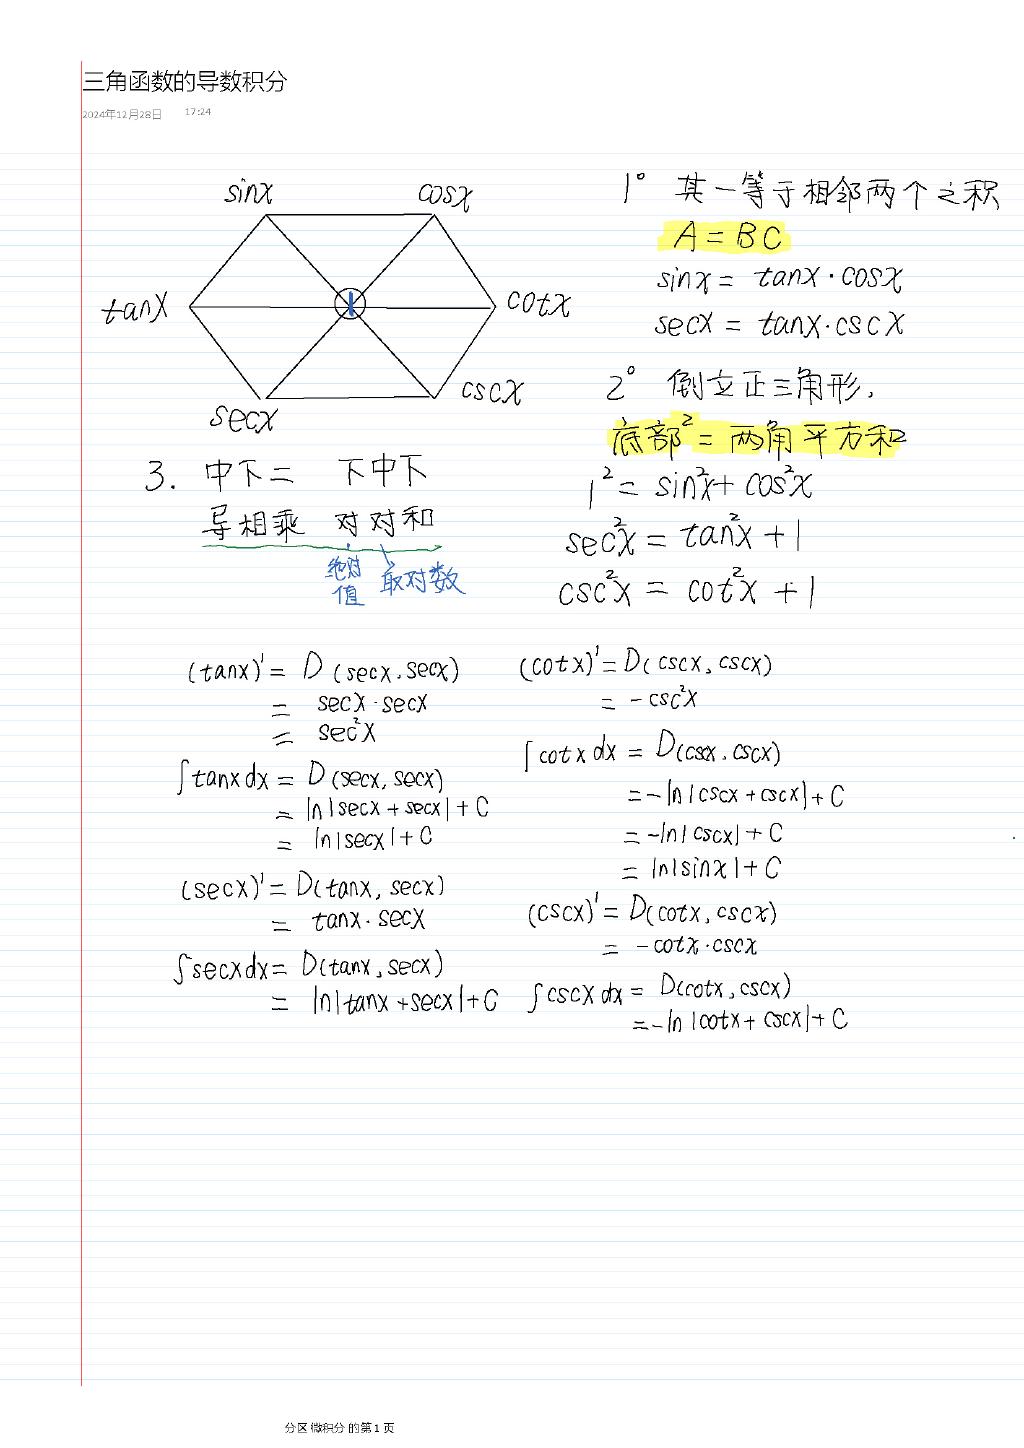 三角函数的导数积分
2024年12月28日 17:24
sinx cosx
tanx 1 cotx
secx cscx
1° 其一等于相邻两个之积
A = BC
sinx = tanx · cosx
secx = tanx · cscx
2° 倒立正三角形,
底部² = 两角平方和
1² = sin²x + cos²x
sec²x = tan²x + 1
csc²x = cot²x + 1
3. 中下二 下中下
导相乘 对对和
绝对值 取对数
(tanx)' = D(secx, secx)
= secx · secx
= sec²x
∫tanxdx = D(secx, secx)
= ln|secx + secx| + C
= ln|secx| + C
(secx)' = D(tanx, secx)
= tanx · secx
∫secxdx = D(tanx, secx)
= ln|tanx + secx| + C
(cotx)' = D(cscx, cscx)
= -csc²x
∫cotxdx = D(cscx, cscx)
= -ln|cscx + cscx| + C
= -ln|cscx| + C
= ln|sinx| + C
(cscx)' = D(cotx, cscx)
= -cotx · cscx
∫cscxdx = D(cotx, cscx)
= -ln|cotx + cscx| + C
分区 微积分 的第 1 页